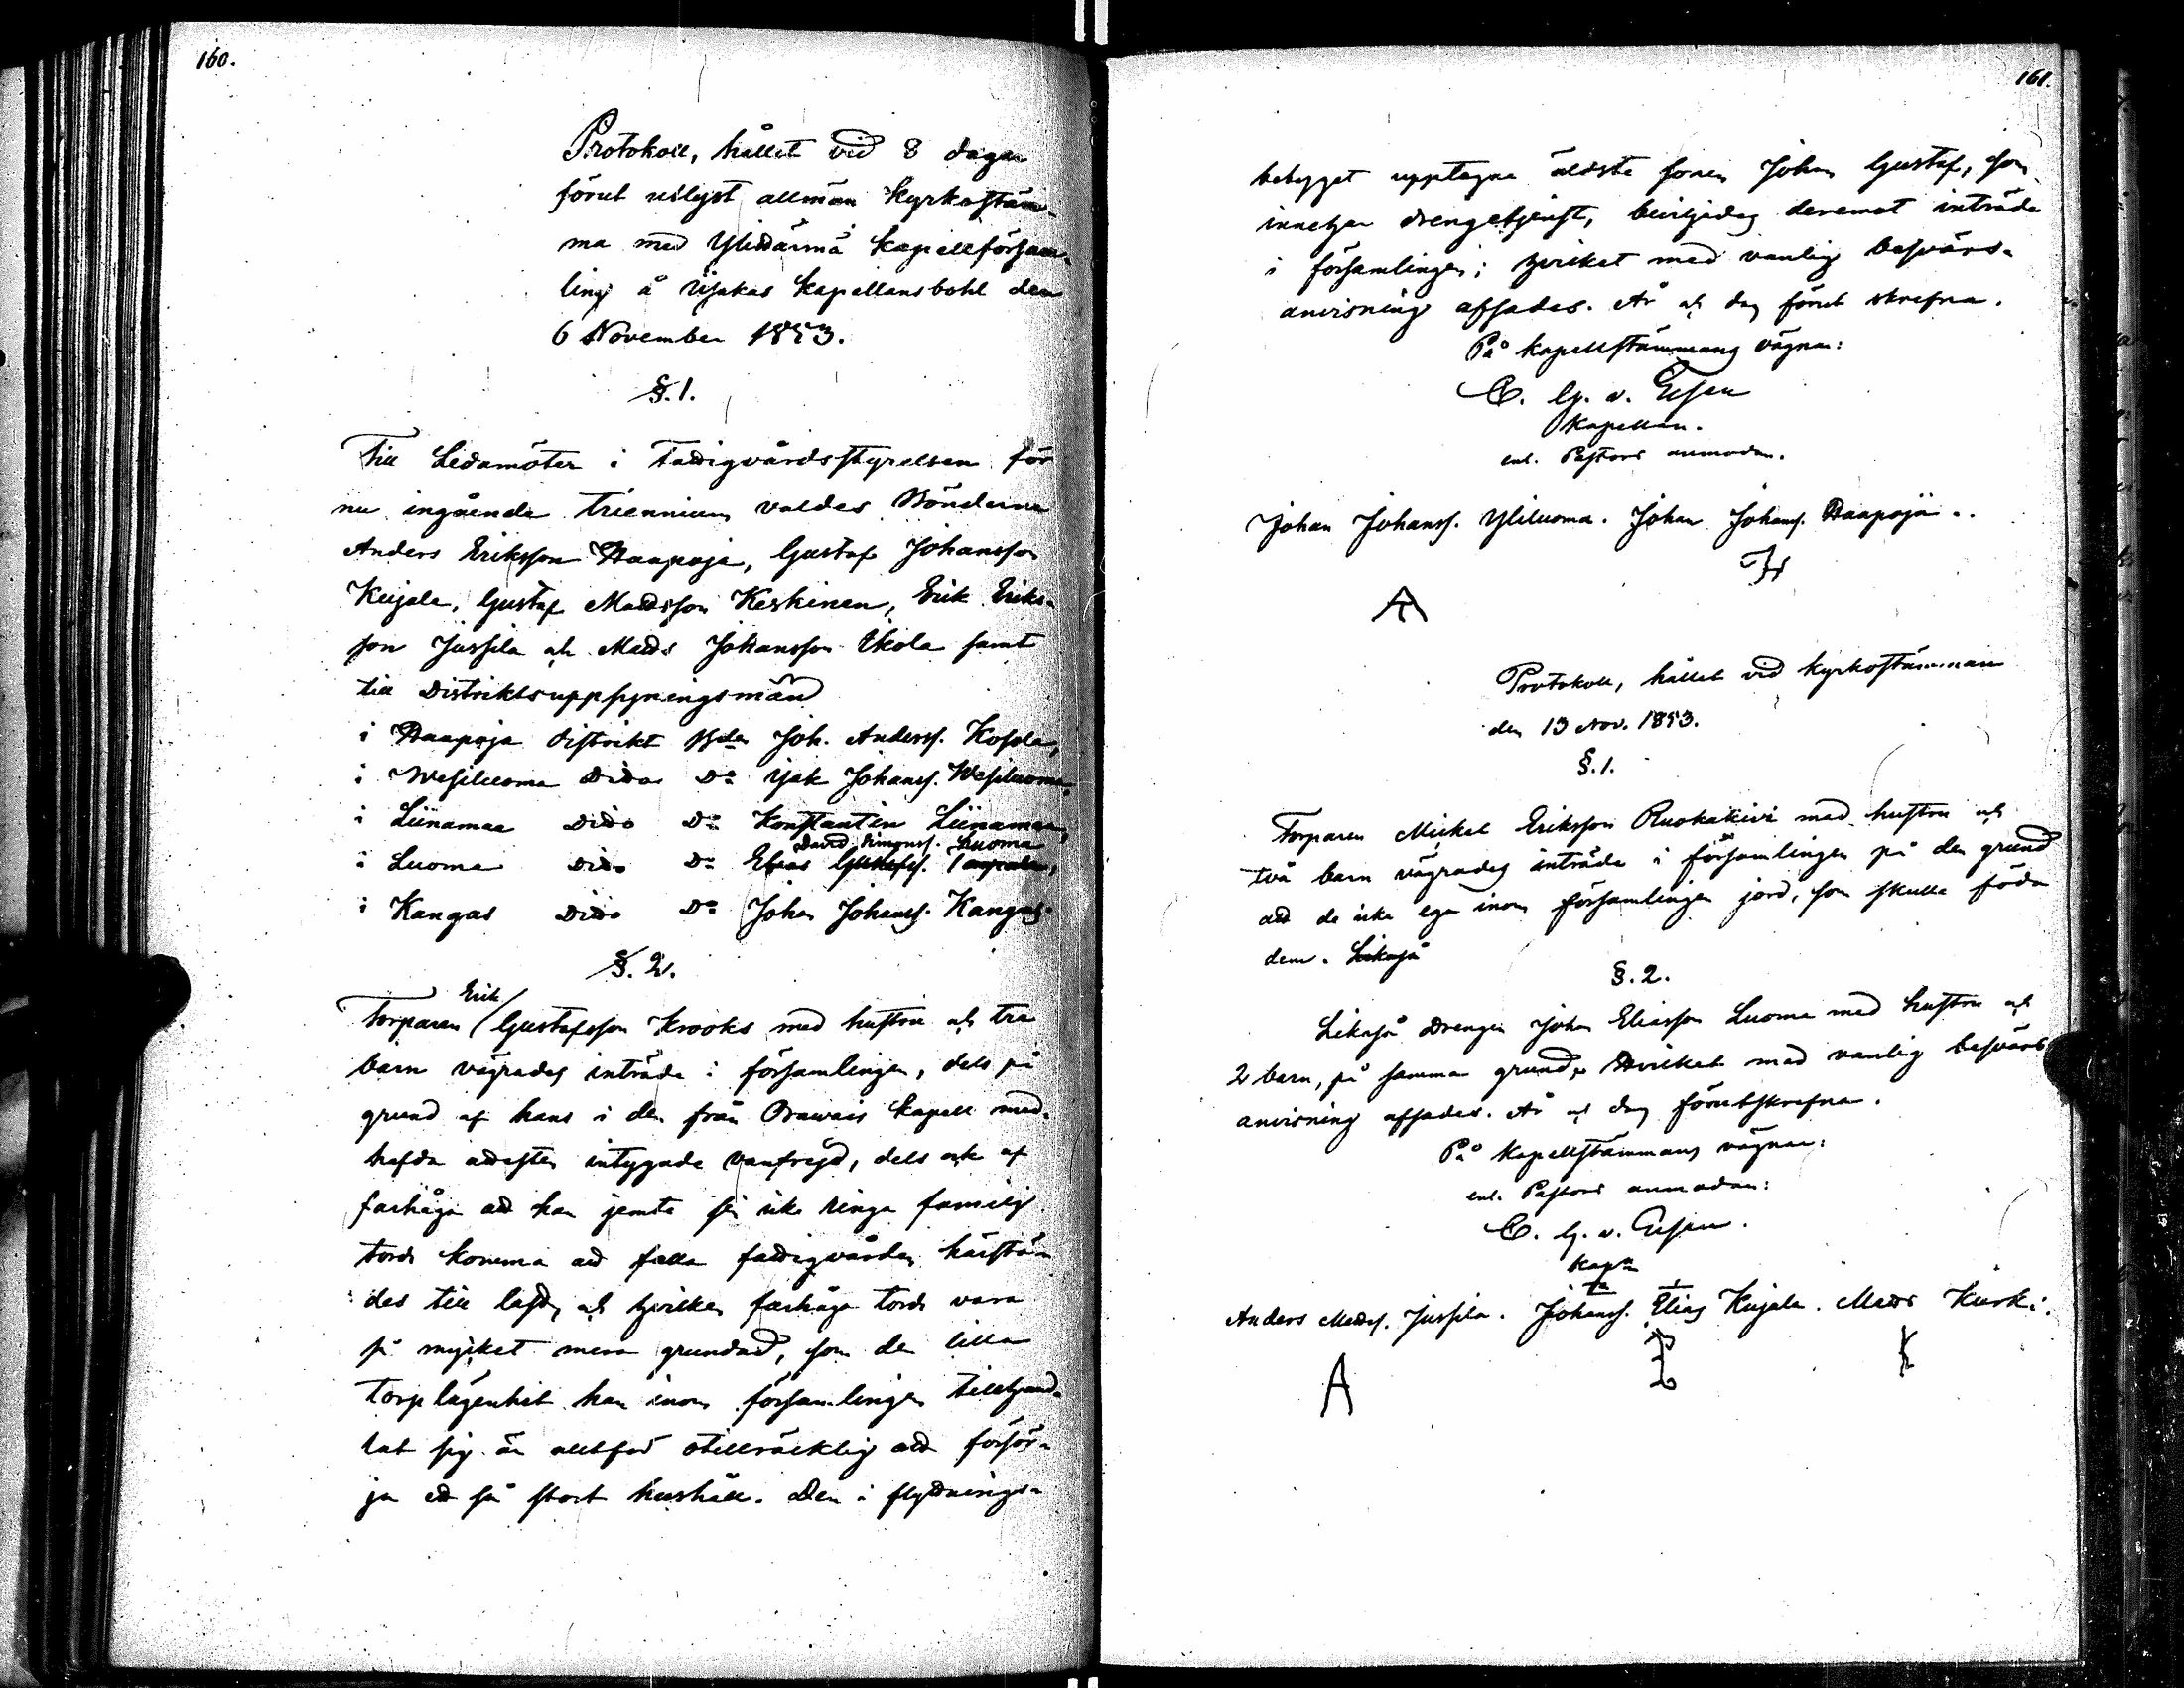 160.
Protokoll, hållet vid 8 dagar
förut utlyst allmän Kyrkostäm-
ma med Ylihärmä Kapellförsam-
ling å Iisakas Kapellansbohl den
6 November 1853.
§. 1.
Till Ledamöter i Fattigvårdsstyrelsen för
nu ingående triennium valdes Bönderne
Anders Eriksson Haapoja, Gustaf Johansson
Kujala, Gustaf Mattsson Keskinen, Erik Eriks-
son Jussila och Matts Johansson Ekola samt
till Distriktsuppsyningsmän
i Haapoja distrikt Bden Joh. Anderss. Kosola,
i Wesiluoma Ditto Do Isak Johanss. Wesiluoma,
i Liinamaa Ditto Do Konstantin Liinamaa,
David Simonss. Luoma
i Luoma Ditto Do Elias Gustafss.
i Kangas Ditto Do Johan Johanss. Kangas.
§. 2.
Erik
Torparen Gustafsson Krooks med hustru och tre
barn vägrades inträde i församlingen, dels på
grund af hans i den från Orawais Kapell med-
hafda attesten intygade vanfrejd, dels ock af
farhåga att han jemte sin icke ringa familj
torde komma att falla fattigvården härstä-
des till last, och hvilken farhåga torde vara
så mycket mera grundad, som den lilla
torplägenhet han inom församlingen tillhand-
lat sig är alltför otillräcklig att försör-
ja ett så stort hushåll. Den i flyttnings-
161.
betyget upptagne äldste sonen Johan Gustaf, som
innehar drengetjenst, beviljades deremot inträde
i församlingen; hvilket med vanlig besvärs-
anvisning afsades. År och dag förut skrefne.
På Kapellstämmans vägnar:
C. G. v. Essen
Kapellan.
enl. Pastors anmodan.
Johan Johanss. Yliluoma. Johan Johanss. Haapoja.
H
Protokoll, hållet vid kyrkostämman
den 13 Nov. 1853.
§. 1.
Torparen Mickel Eriksson Ruokakivi med hustru och
två barn vägrades inträde i församlingen på den grund
att de icke ega inom församlingen jord, som skulle föda
dem. Likaså
§. 2.
Likaså Drengen Johan Eliasson Luoma med hustru och
2 barn, på samma grund, Hvilket med vanlig besvärs
anvisning afsades. År och dag förutskrefne.
På Kapellstämmans vägnar:
enl. Pastors anmodan:
C. G. v. Essen.
Kapn
Anders Mattss. Jussila. Johanss. Elias Kujala. Matts Kurki.
A
K